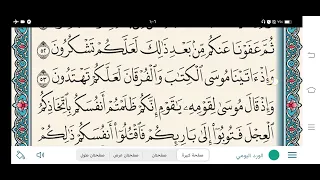 ١-٦
ثُمَّ عَفَوْنَا عَنكُم مِّنۢ بَعْدِ ذَٰلِكَ لَعَلَّكُمْ تَشْكُرُونَ ٥٢
وَإِذْ ءَاتَيْنَا مُوسَى ٱلْكِتَٰبَ وَٱلْفُرْقَانَ لَعَلَّكُمْ تَهْتَدُونَ ٥٣
وَإِذْ قَالَ مُوسَىٰ لِقَوْمِهِۦ يَٰقَوْمِ إِنَّكُمْ ظَلَمْتُمْ أَنفُسَكُم بِٱتِّخَاذِكُمُ
ٱلْعِجْلَ فَتُوبُوٓا۟ إِلَىٰ بَارِئِكُمْ فَٱقْتُلُوٓا۟ أَنفُسَكُمْ ذَٰلِكُمْ
الورد اليومي صفحة كبيرة صفحتان صفحتان عرض صفحتان طول